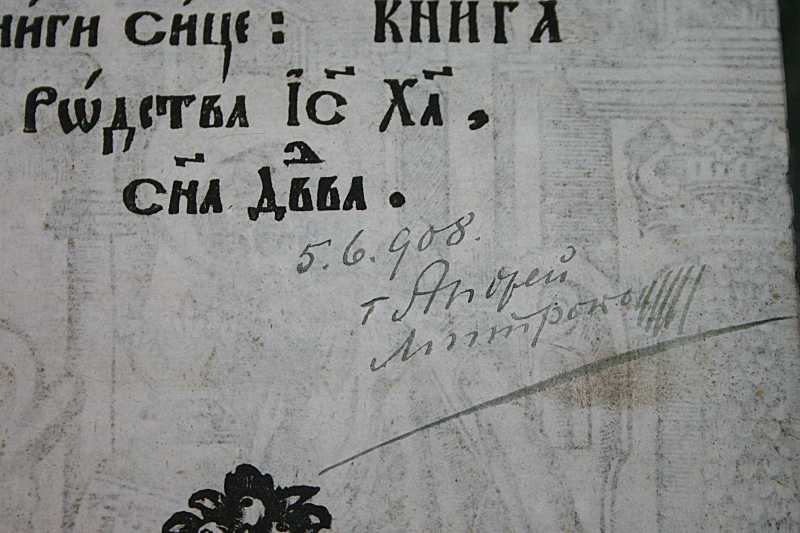 книги си́це: КНИГА
Рѡ́дства І҆с Ха҃,
сн҃а дв҃два.
5.6.908.
† Андрей
Митропо